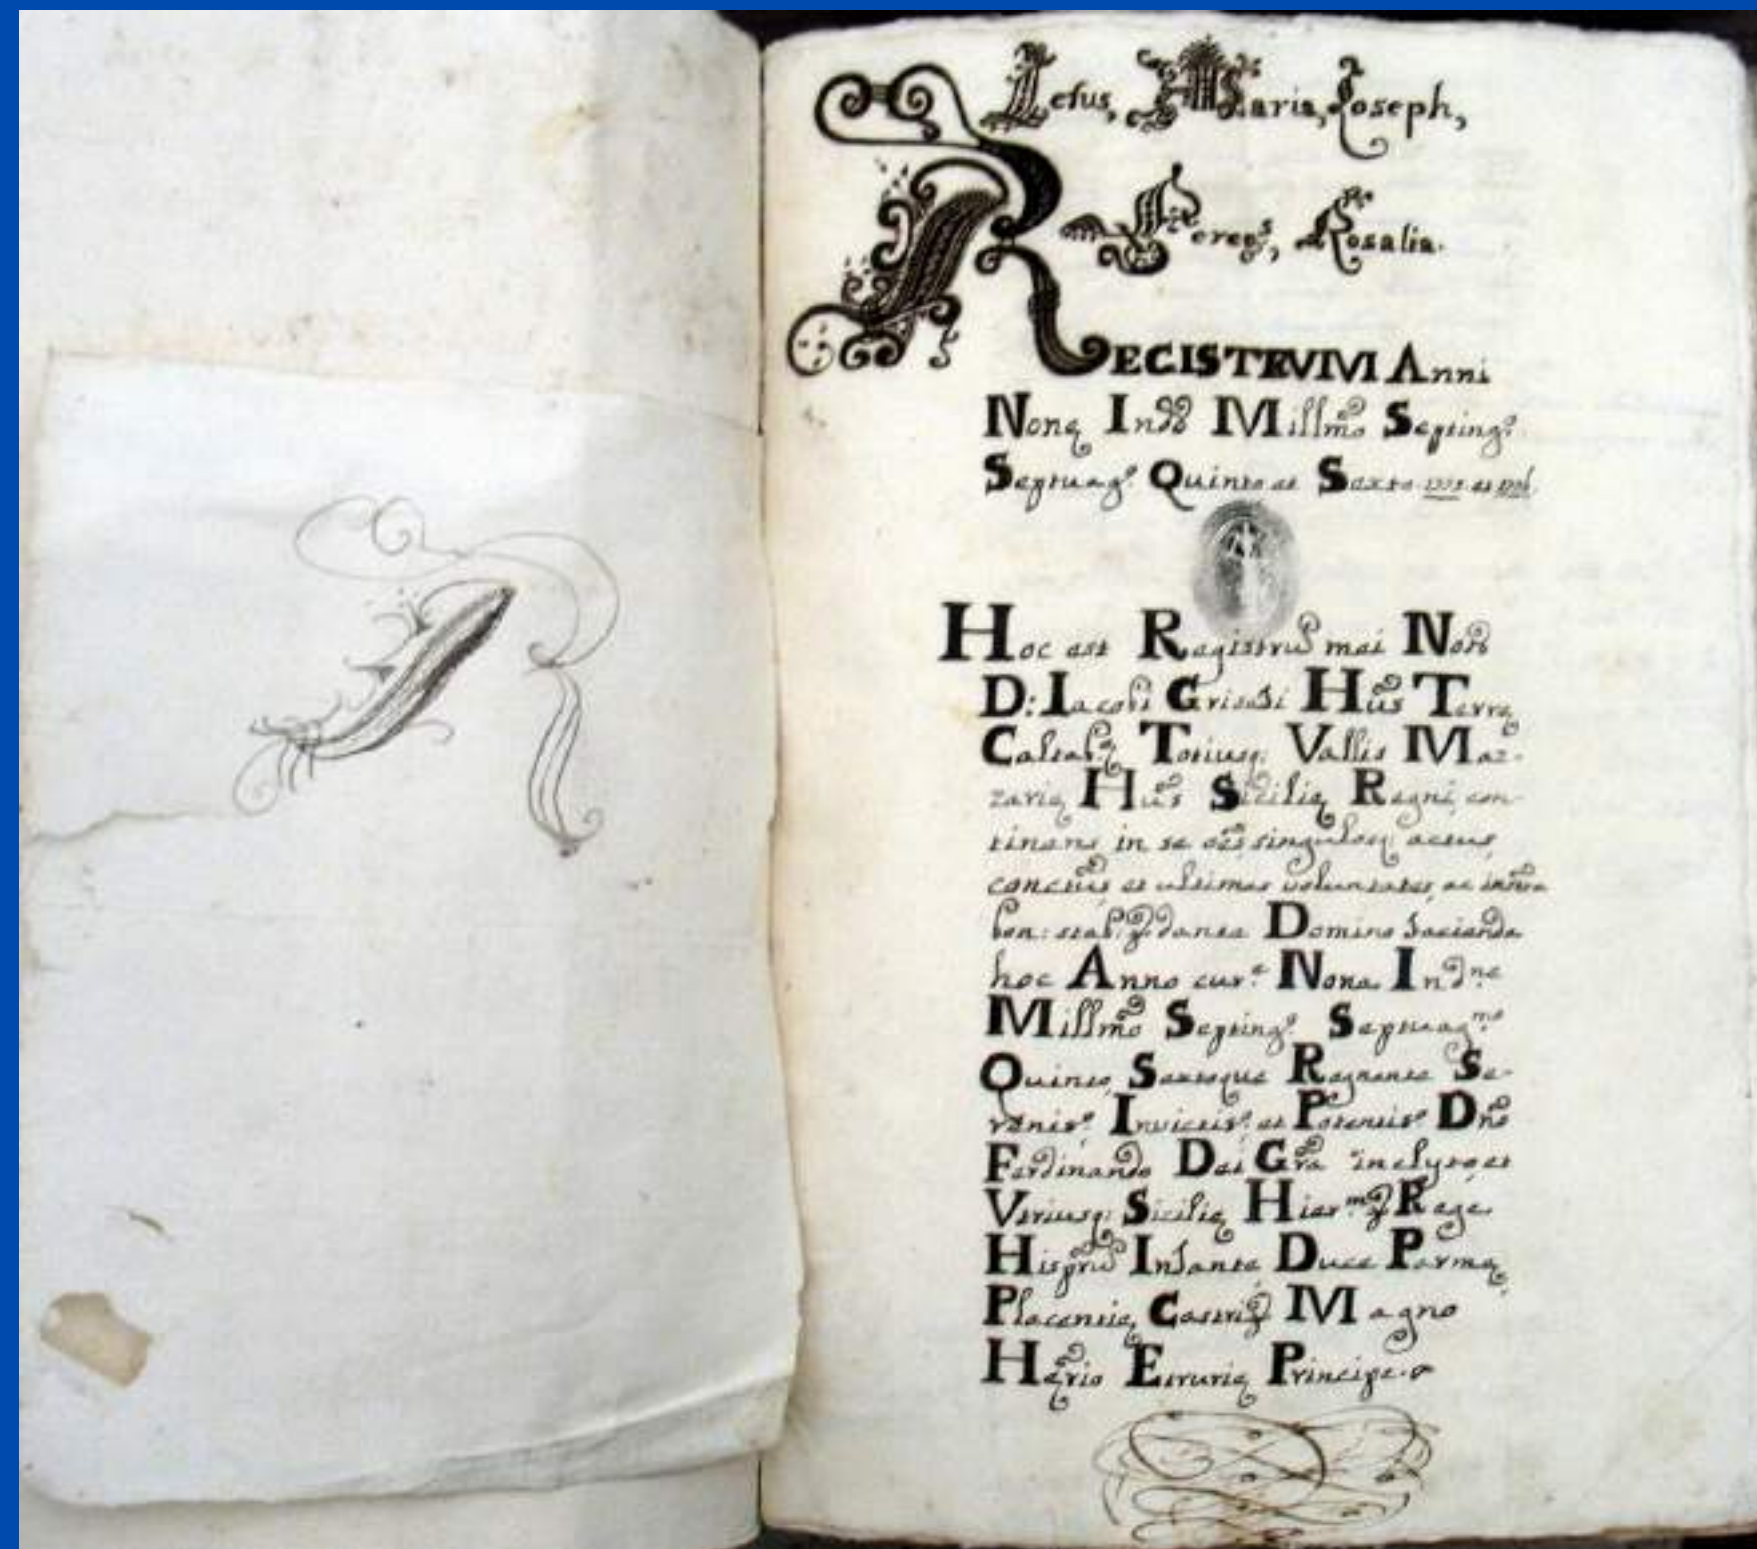 Iesus, Maria, Ioseph,
Rosalia.
REGISTRUM Anni
Nonę Millmo Septingo
Septuago Quinto et Sexto 1775 et 1776
Hoc est Registrũ mei Noῖ
D: Iacobi Hus Terrę
Totiusq. Vallis Ma-
zarię Hus Sicilię Regni con-
tinens in se singulosq actus,
et ultimas voluntates, ac
Domino faciendo
hoc Anno cure Nona Indne
Millmo Septingo Septuagmo
Quinto, Sextoque Regnante Se-
reniso Invictiso et Potentiso Dño
Ferdinando Dei Grã inclyto et
Utriusq: Sicilię Rege
Infante Duce Parmę
Placentię Magno
Etrurię Principe